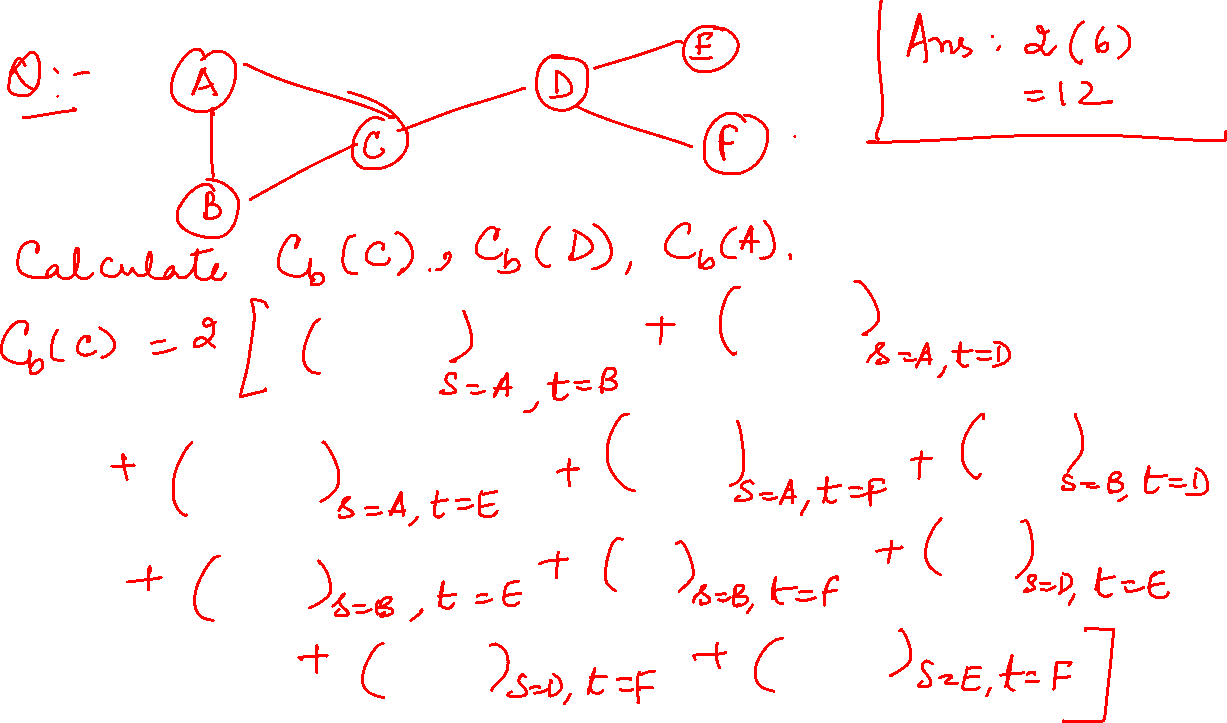 Q:-
A
B
C
D
E
F
Ans: 2(6)
=12
Calculate C_b(C), C_b(D), C_b(A).
C_b(C) = 2 [ (   )_{s=A, t=B} + (   )_{s=A, t=D}
+ (   )_{s=A, t=E} + (   )_{s=A, t=F} + (   )_{s=B, t=D}
+ (   )_{s=B, t=E} + (   )_{s=B, t=F} + (   )_{s=D, t=E}
+ (   )_{s=D, t=F} + (   )_{s=E, t=F} ]